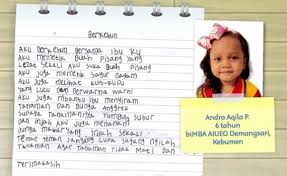 Berkebun
Aku Berkebun Bersama Ibu ku
Aku memetik Buah Pisang yang
Lebat Sekali Aku suka Buah Pisang
Aku Juga memetik Sayur Bayam
Aku Juga melihat kupu-kupu
yang Lucu dan Berwarna warni
Aku Juga mbantu Ibu menyiram
Tanaman dan Bunga Anggrek
Supaya Tanamannya Tumbuh Subur
dan pada Ini Aku Juga menanam
bunga mawar yang Indah sekali
Teman teman Jangan Lupa sayang
Tanaman Agar Tanaman Tidak Mati Dan
Terimakasih
Andra Aqila P.
6 tahun
biMBA AIUEO Demangsari,
Kebumen